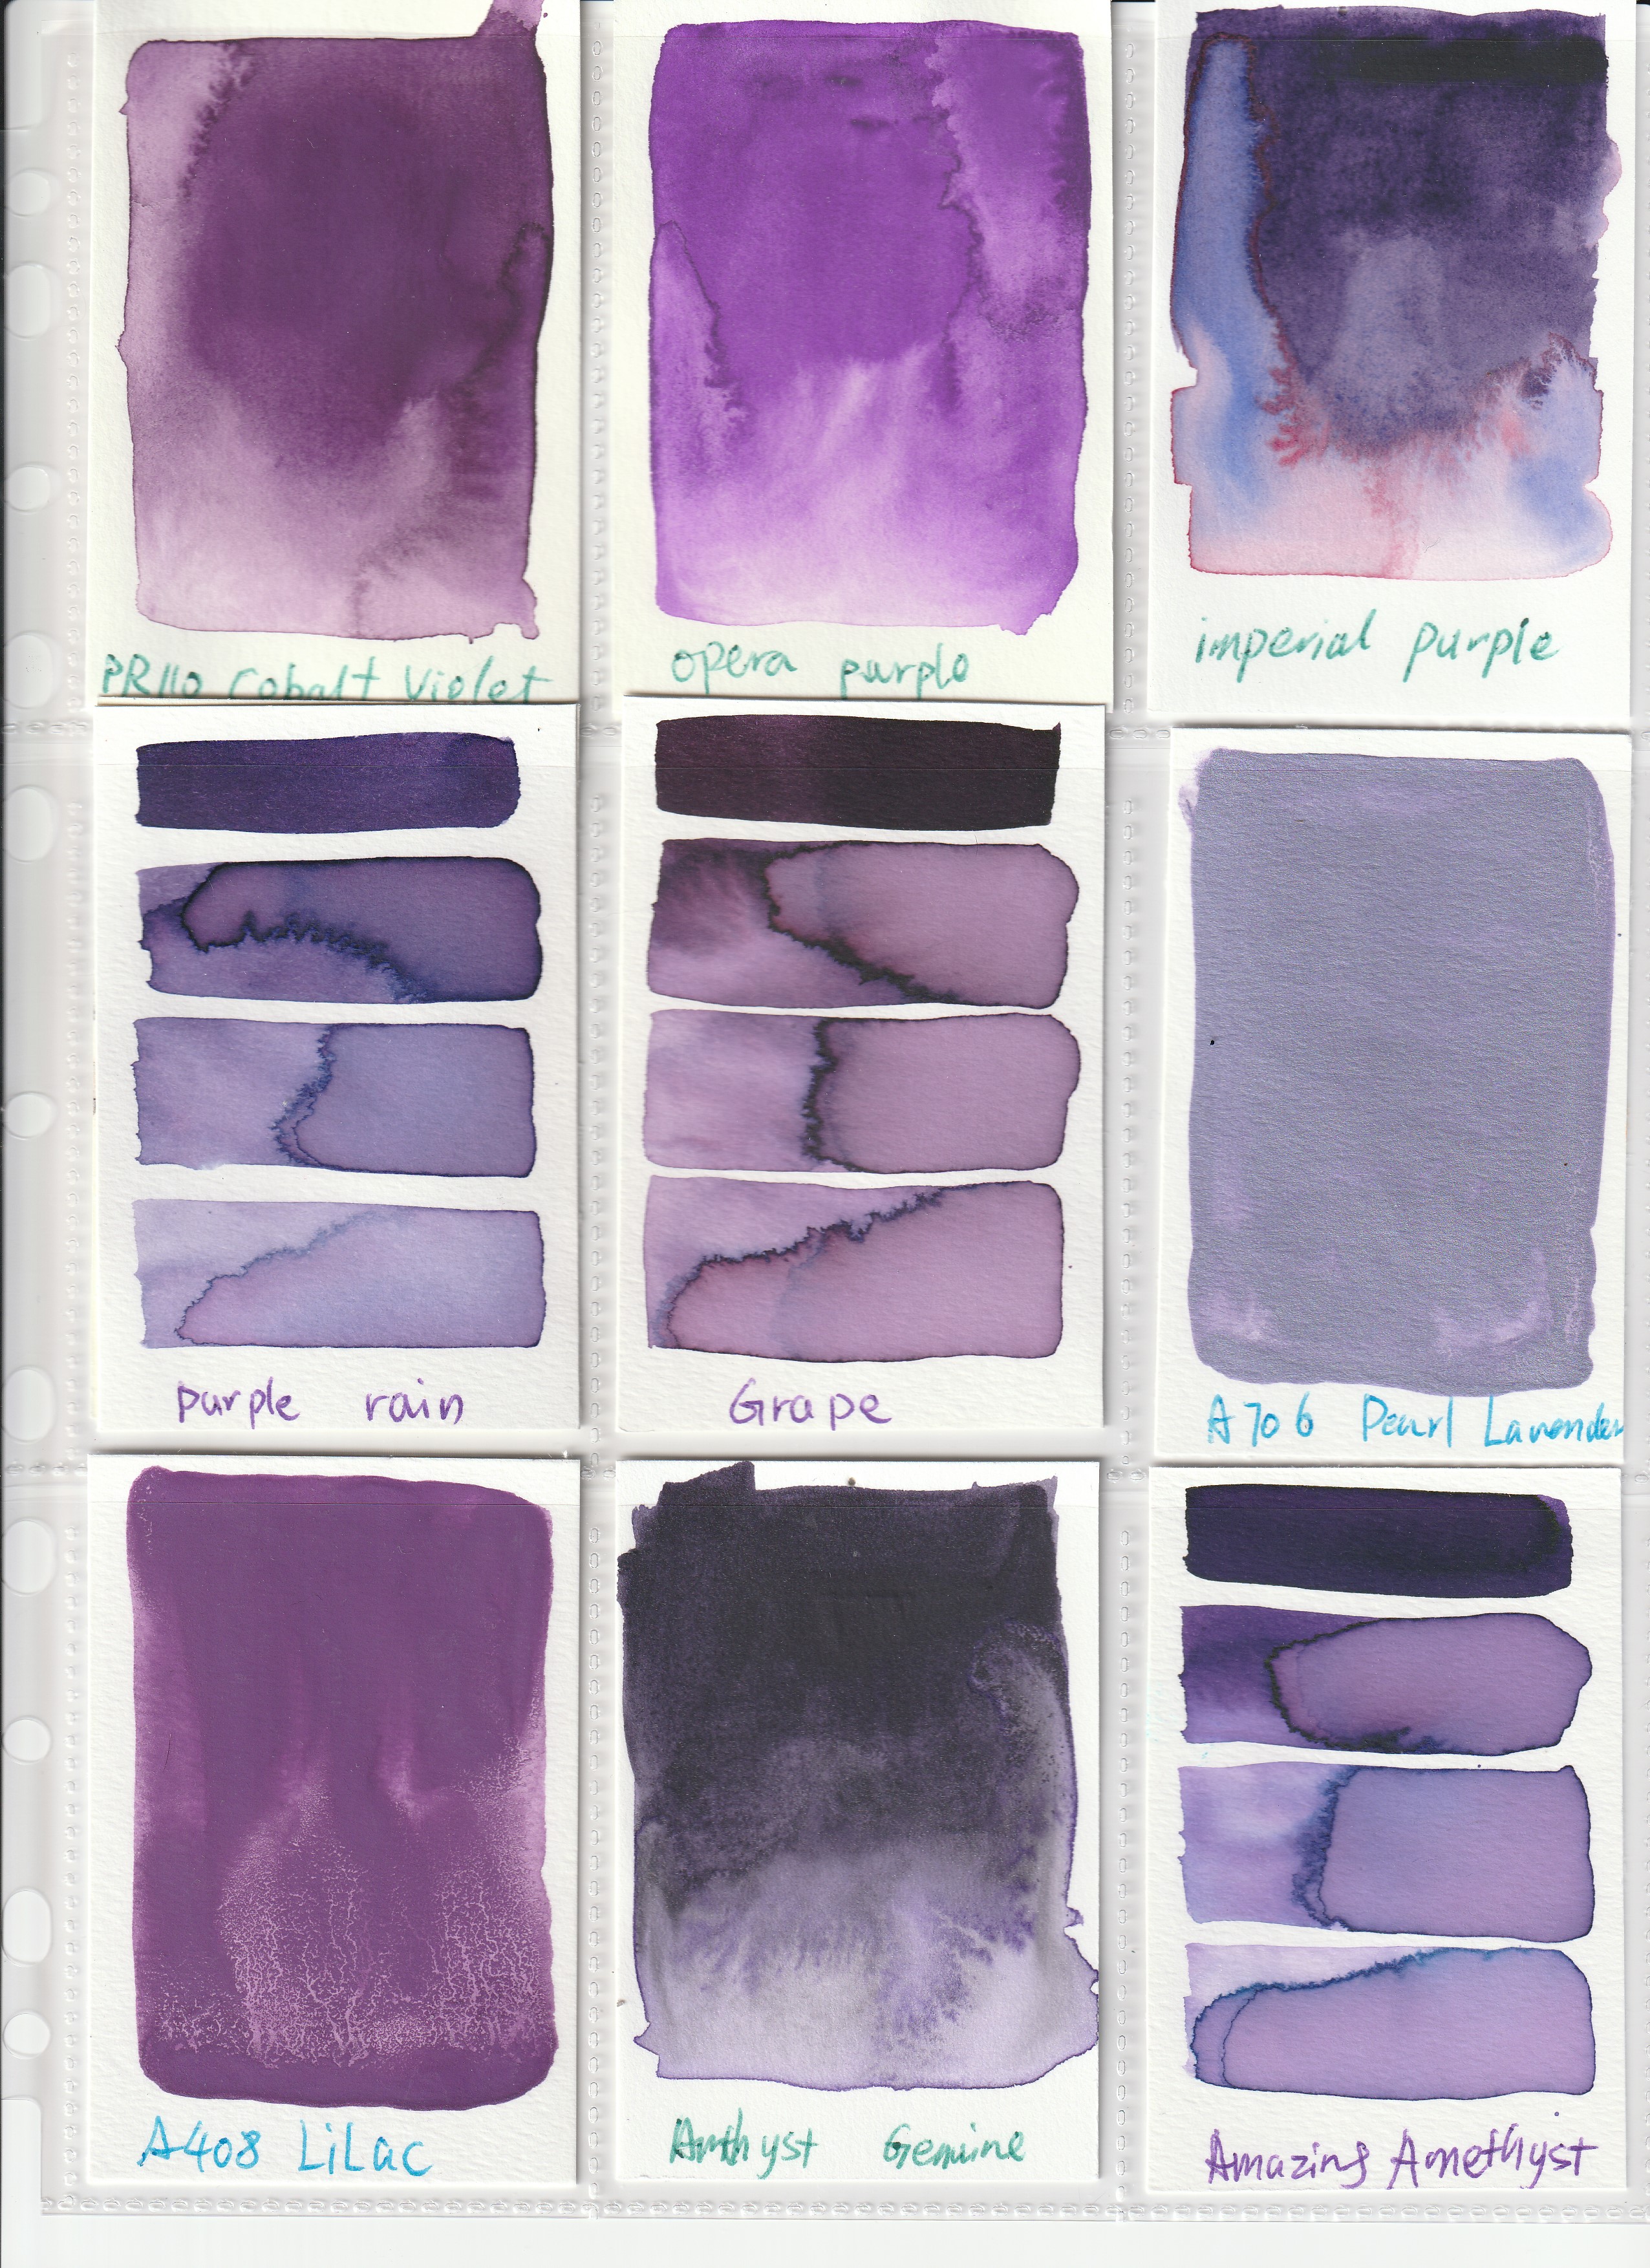 PR110 Cobalt Violet
opera purple
imperial purple
purple rain
Grape
A706 Pearl Lavender
A408 LiLac
Amthyst Genuine
Amazing Amethyst